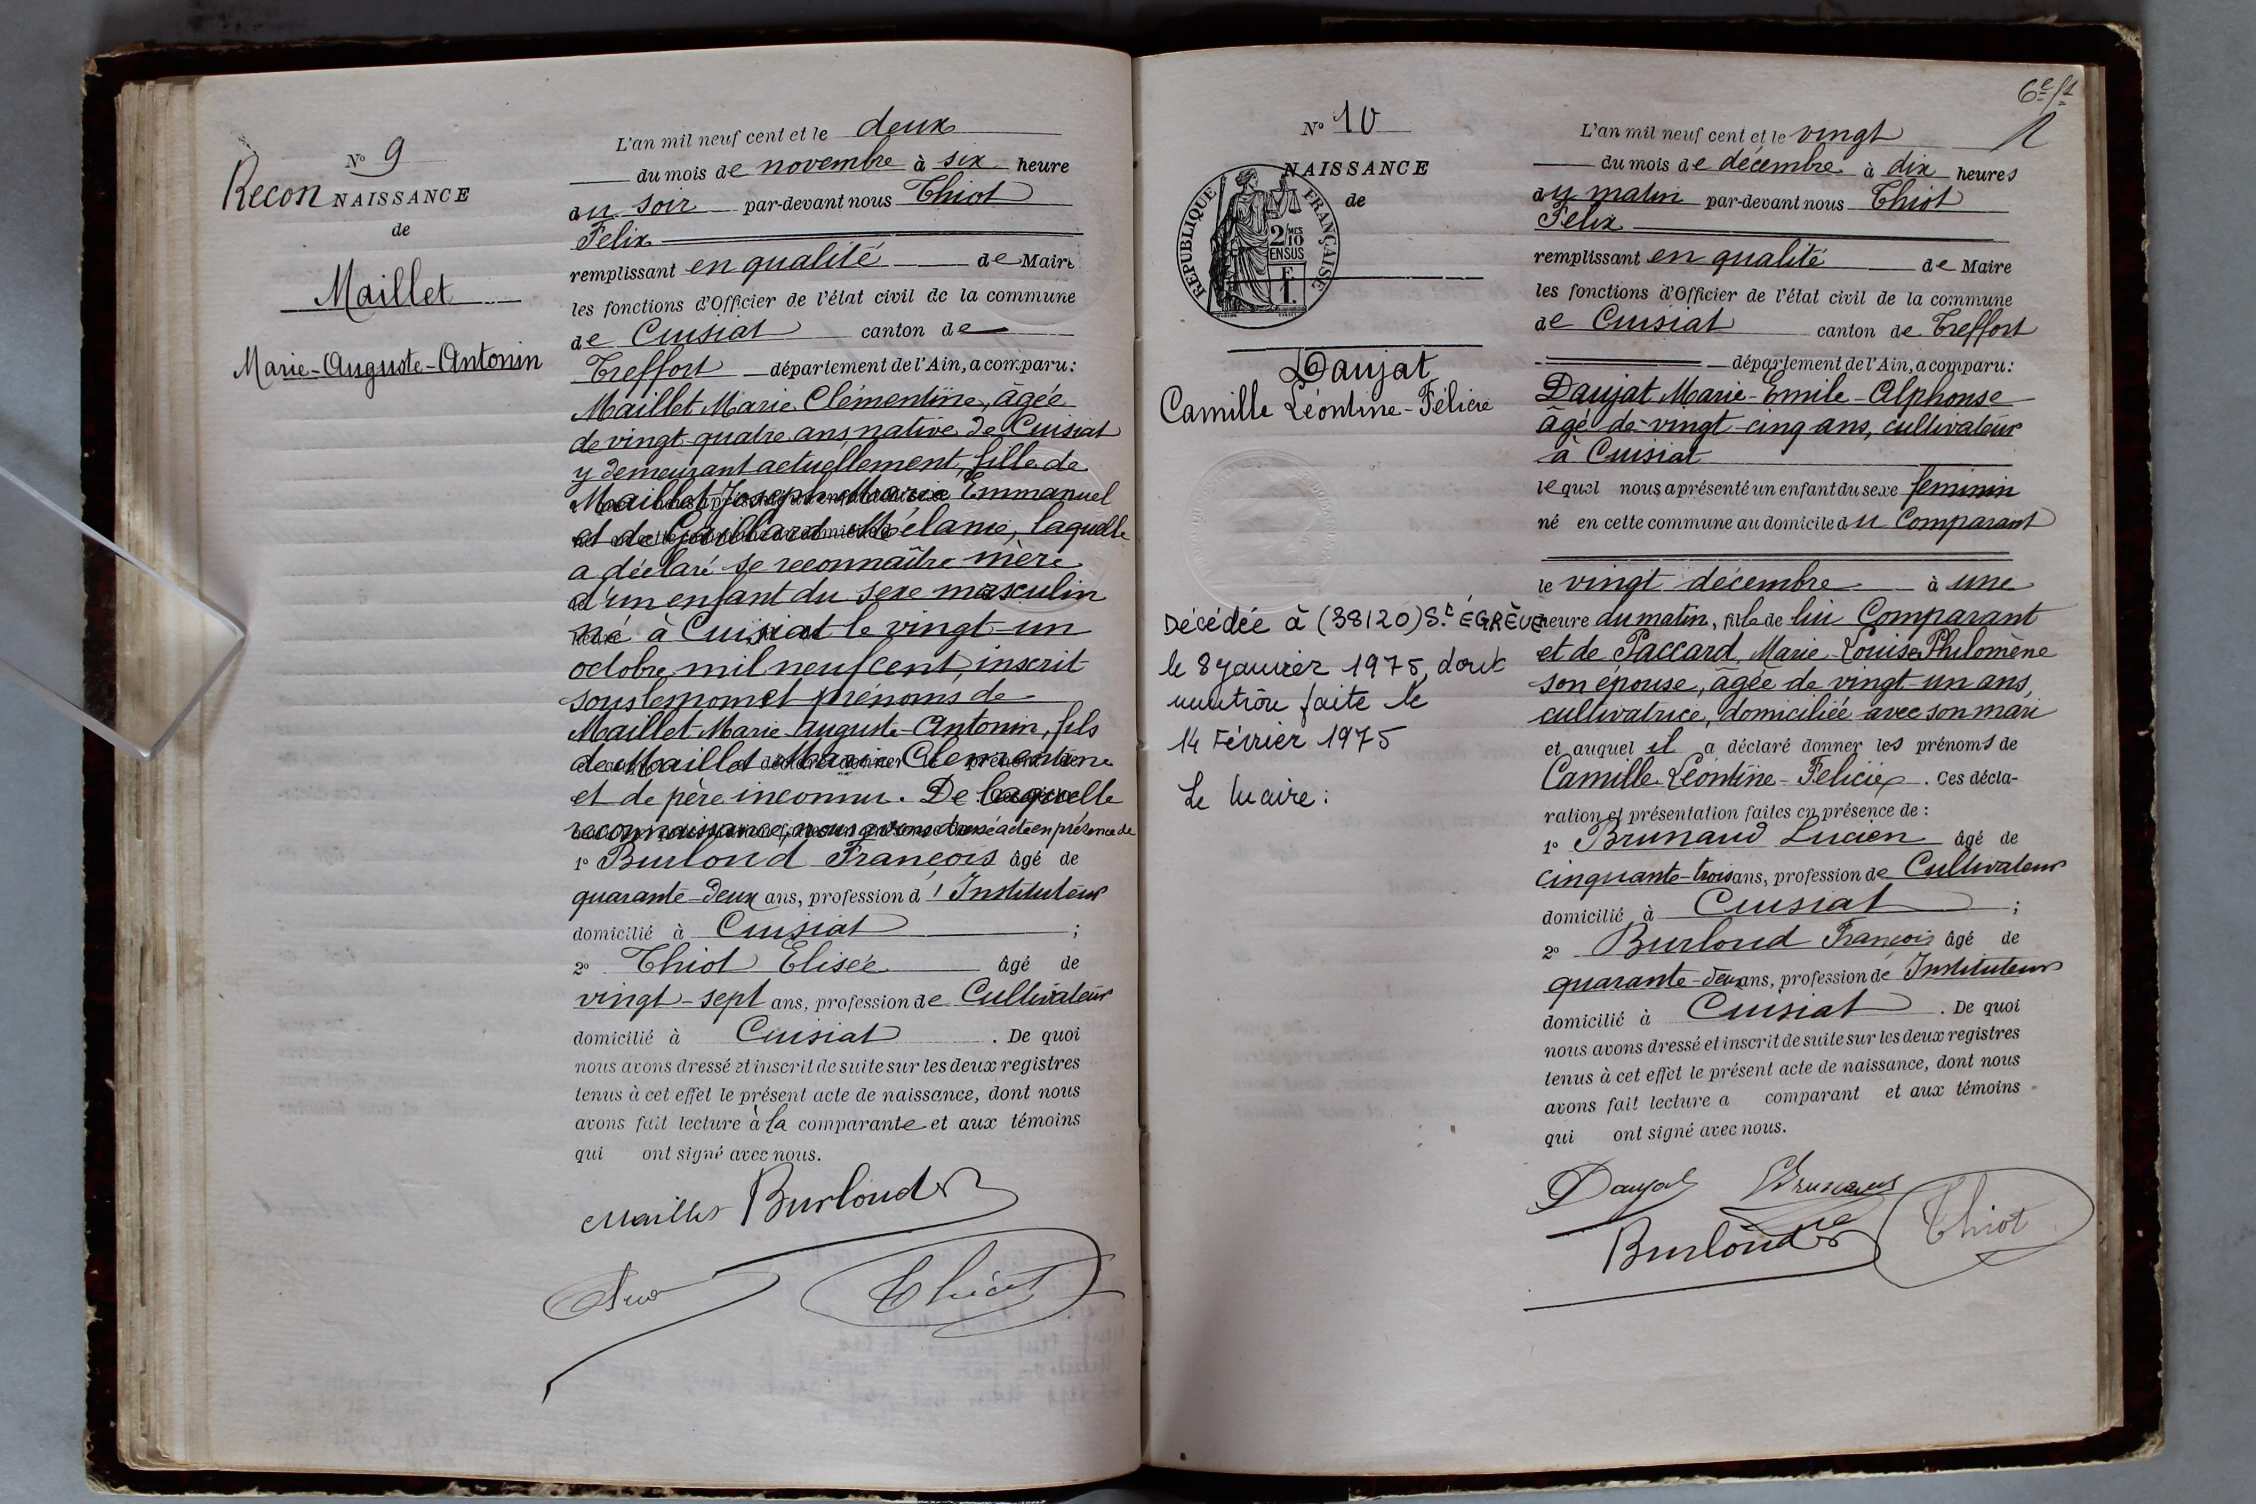 Nº 9
Recon NAISSANCE
de
Maillet
Marie-Auguste-Antonin
L'an mil neuf cent et le deux
du mois de novembre à six heure
du soir par-devant nous Thiot
Felix
remplissant en qualité de Maire
les fonctions d'Officier de l'état civil de la commune
de Cuisiat canton de
Treffort département de l'Ain, a comparu:
Maillet Marie Clémentine, âgée
de vingt-quatre ans native de Cuisiat
y demeurant actuellement, fille de
Maillet Joseph Marie Emmanuel
et de Gaillard Mélanie, laquelle
a déclaré se reconnaître mère
d'un enfant du sexe masculin
né à Cuisiat le vingt-un
octobre mil neuf cent, inscrit
sous les nom et prénoms de
Maillet Marie-Auguste-Antonin, fils
de Maillet Marie Clémentine
et de père inconnu. De laquelle
reconnaissance, nous avons dressé acte en présence de
1º Burloud François âgé de
quarante-deux ans, profession d'Instituteur
domicilié à Cuisiat ;
2º Thiot Elisée âgé de
vingt-sept ans, profession de Cultivateur
domicilié à Cuisiat . De quoi
nous avons dressé et inscrit de suite sur les deux registres
tenus à cet effet le présent acte de naissance, dont nous
avons fait lecture à la comparante et aux témoins
qui ont signé avec nous.
Maillet Burloud
Thiot
6e ft
Nº 10
NAISSANCE
de
REPUBLIQUE FRANÇAISE
2/10
MES
EN SUS
F.
1.
Daujat
Camille Léontine-Félicie
Décédée à (38120) St ÉGRÈVE
le 8 janvier 1975, dont
mention faite le
14 Février 1975
Le Maire :
L'an mil neuf cent et le vingt
du mois de décembre à dix heures
du matin par-devant nous Thiot
Felix
remplissant en qualité de Maire
les fonctions d'Officier de l'état civil de la commune
de Cuisiat canton de Treffort
département de l'Ain, a comparu:
Daujat Marie-Emile-Alphonse
âgé de vingt-cinq ans, cultivateur
à Cuisiat
lequel nous a présenté un enfant du sexe feminin
né en cette commune au domicile du Comparant
le vingt décembre à une
heure du matin, fille de lui Comparant
et de Paccard, Marie-Louise Philomène
son épouse, âgée de vingt-un ans,
cultivatrice, domiciliée avec son mari
et auquel il a déclaré donner les prénoms de
Camille-Léontine-Felicie . Ces décla-
ration et présentation faites en présence de :
1º Brunaud Lucien âgé de
cinquante-trois ans, profession de Cultivateur
domicilié à Cuisiat ;
2º Burloud François âgé de
quarante-deux ans, profession de Instituteur
domicilié à Cuisiat . De quoi
nous avons dressé et inscrit de suite sur les deux registres
tenus à cet effet le présent acte de naissance, dont nous
avons fait lecture a comparant et aux témoins
qui ont signé avec nous.
Daujat Brunaud
Burloud Thiot